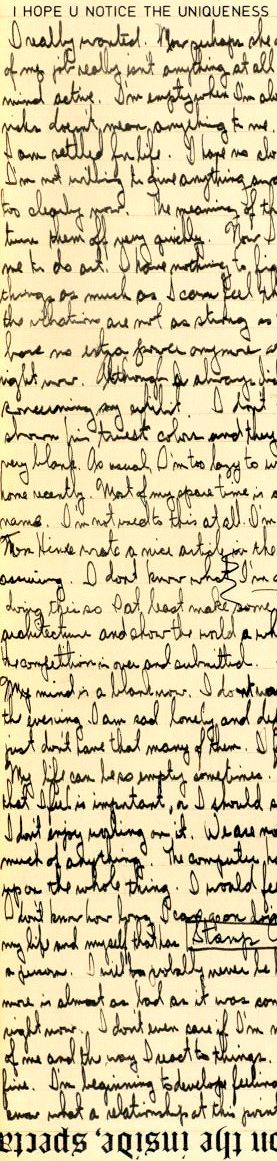 I HOPE U NOTICE THE UNIQUENESS
I really wanted. Now perhaps she
of my job really isn't anything at all
mind active. I'm empty when I'm al
risks doesn't mean anything to me.
I am settled for life. I hope no
I'm not willing to give anything
too clearly now. The meaning of th
turn them off very quickly. Now I
me to do art. I have nothing to
things as much as I can feel
the vibrations are not as strong as
have no extra force anymore
right now. Although I always
concerning my exhibit. I don't
shown in truest colors and they
very blank. As usual, I'm too lazy to
home recently. Most of my spare time is
name. I'm not used to this at all. I'm
wrote a nice article in the
assuring. I don't know what I'm
doing this so I at least make some
architecture and show the world a wh
the competition is open and submitted.
My mind is a blank now. I do not wa
the evening I am sad lonely and de
just don't have that many of them. I
My life can be so empty sometimes.
that I feel is important, or I should s
I don't enjoy working on it. We are no
much of anything. The computer
upon the whole thing. I would fe
I don't know how long I can go on
my life and myself that has Stamp
a person. I will probably never be
more is almost as bad as it was
right now. I don't even care if I'm
of me and the way I react to things.
fine. I'm beginning to develop feeling
know what a relationship at this point
on the inside, specta